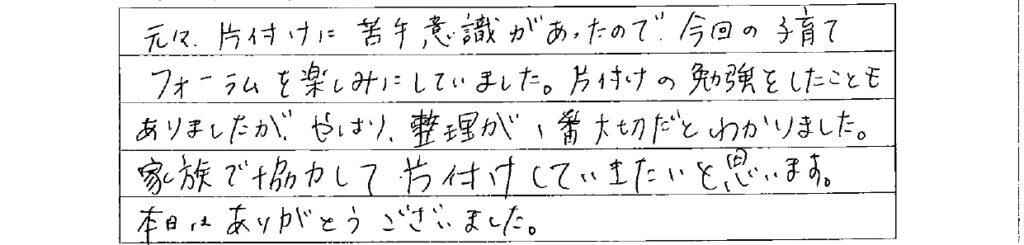 元々、片付けに苦手意識があったので、今回の子育て
フォーラムを楽しみにしていました。片付けの勉強をしたことも
ありましたが、やはり、整理が1番大切だとわかりました。
家族で協力して片付けしていきたいと思います。
本日はありがとうございました。